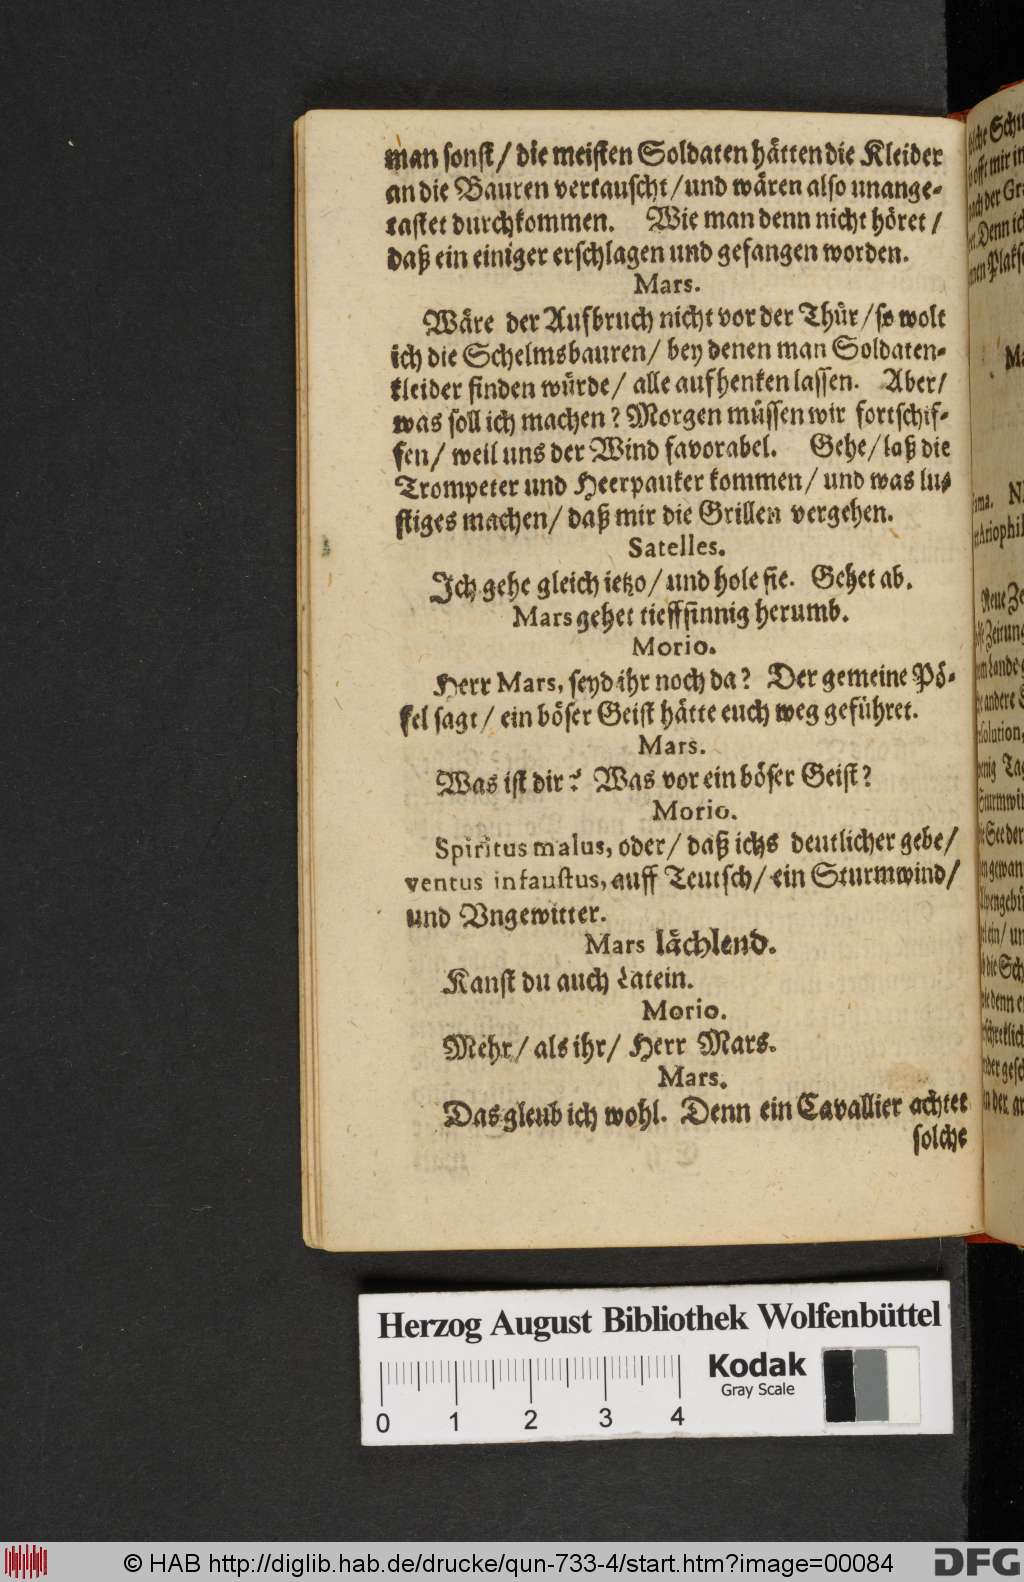 man sonst / die meisten Soldaten hätten die Kleider
an die Bauren vertauscht / und wären also unange-
tastet durchkommen. Wie man denn nicht höret /
daß ein einiger erschlagen und gefangen worden.
Mars.
Wäre der Aufbruch nicht vor der Thür / so wolt
ich die Schelmsbauren / bey denen man Soldaten-
kleider finden würde / alle aufhenken lassen. Aber /
was soll ich machen? Morgen müssen wir fortschif-
fen / weil uns der Wind favorabel. Gehe / laß die
Trompeter und Heerpauker kommen / und was lu-
stiges machen / daß mir die Grillen vergehen.
Satelles.
Ich gehe gleich ietzo / und hole sie. Gehet ab.
Mars gehet tieffsinnig herumb.
Morio.
Herr Mars, seyd ihr noch da? Der gemeine Pö-
fel sagt / ein böser Geist hätte euch weg geführet.
Mars.
Was ist dir? Was vor ein böser Geist?
Morio.
Spiritus malus, oder / daß ichs deutlicher gebe /
ventus infaustus, auff Teutsch / ein Sturmwind /
und Vngewitter.
Mars lächlend.
Kanst du auch Latein.
Morio.
Mehr / als ihr / Herr Mars.
Mars.
Das gleub ich wohl. Denn ein Cavallier achtet
solche
Herzog August Bibliothek Wolfenbüttel
Kodak
Gray Scale
0 1 2 3 4
© HAB http://diglib.hab.de/drucke/qun-733-4/start.htm?image=00084
DFG